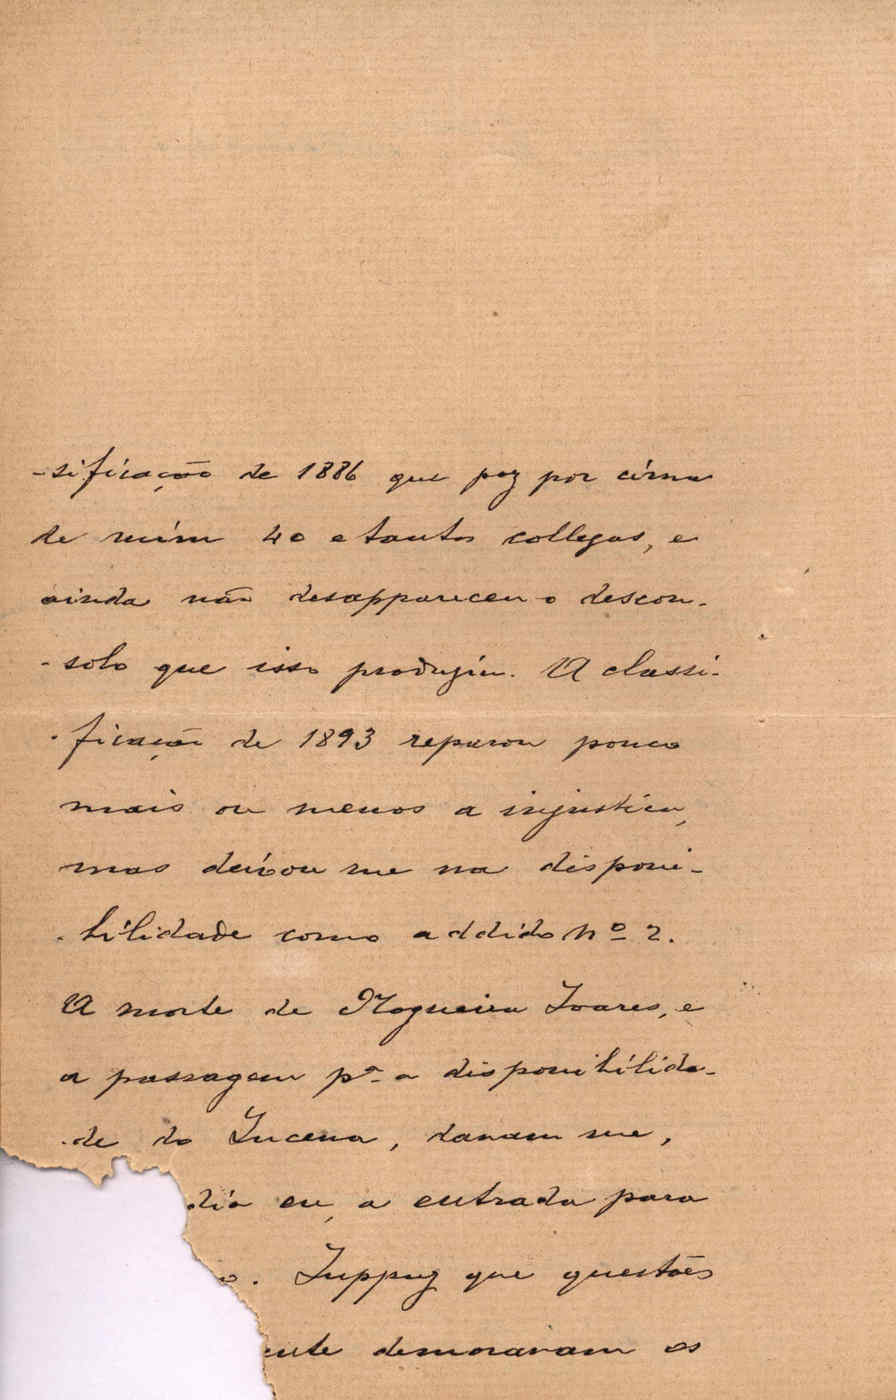 -sificação de 1886 que poz por cima
de mim 40 e tantos collegas, e
ainda não desappareceu o descon-
-solo que isso produziu. A classi-
-ficação de 1893 reparou pouco
mais ou menos a injustiça,
mas deixou me na disponi-
-bilidade como addido nº 2.
A morte de Nogueira Soares, e
a passagem pª a disponibilida-
-de do Lucena, davam me,
dia eu, a entrada para
o. Suppuz que questões
ente demoravam os